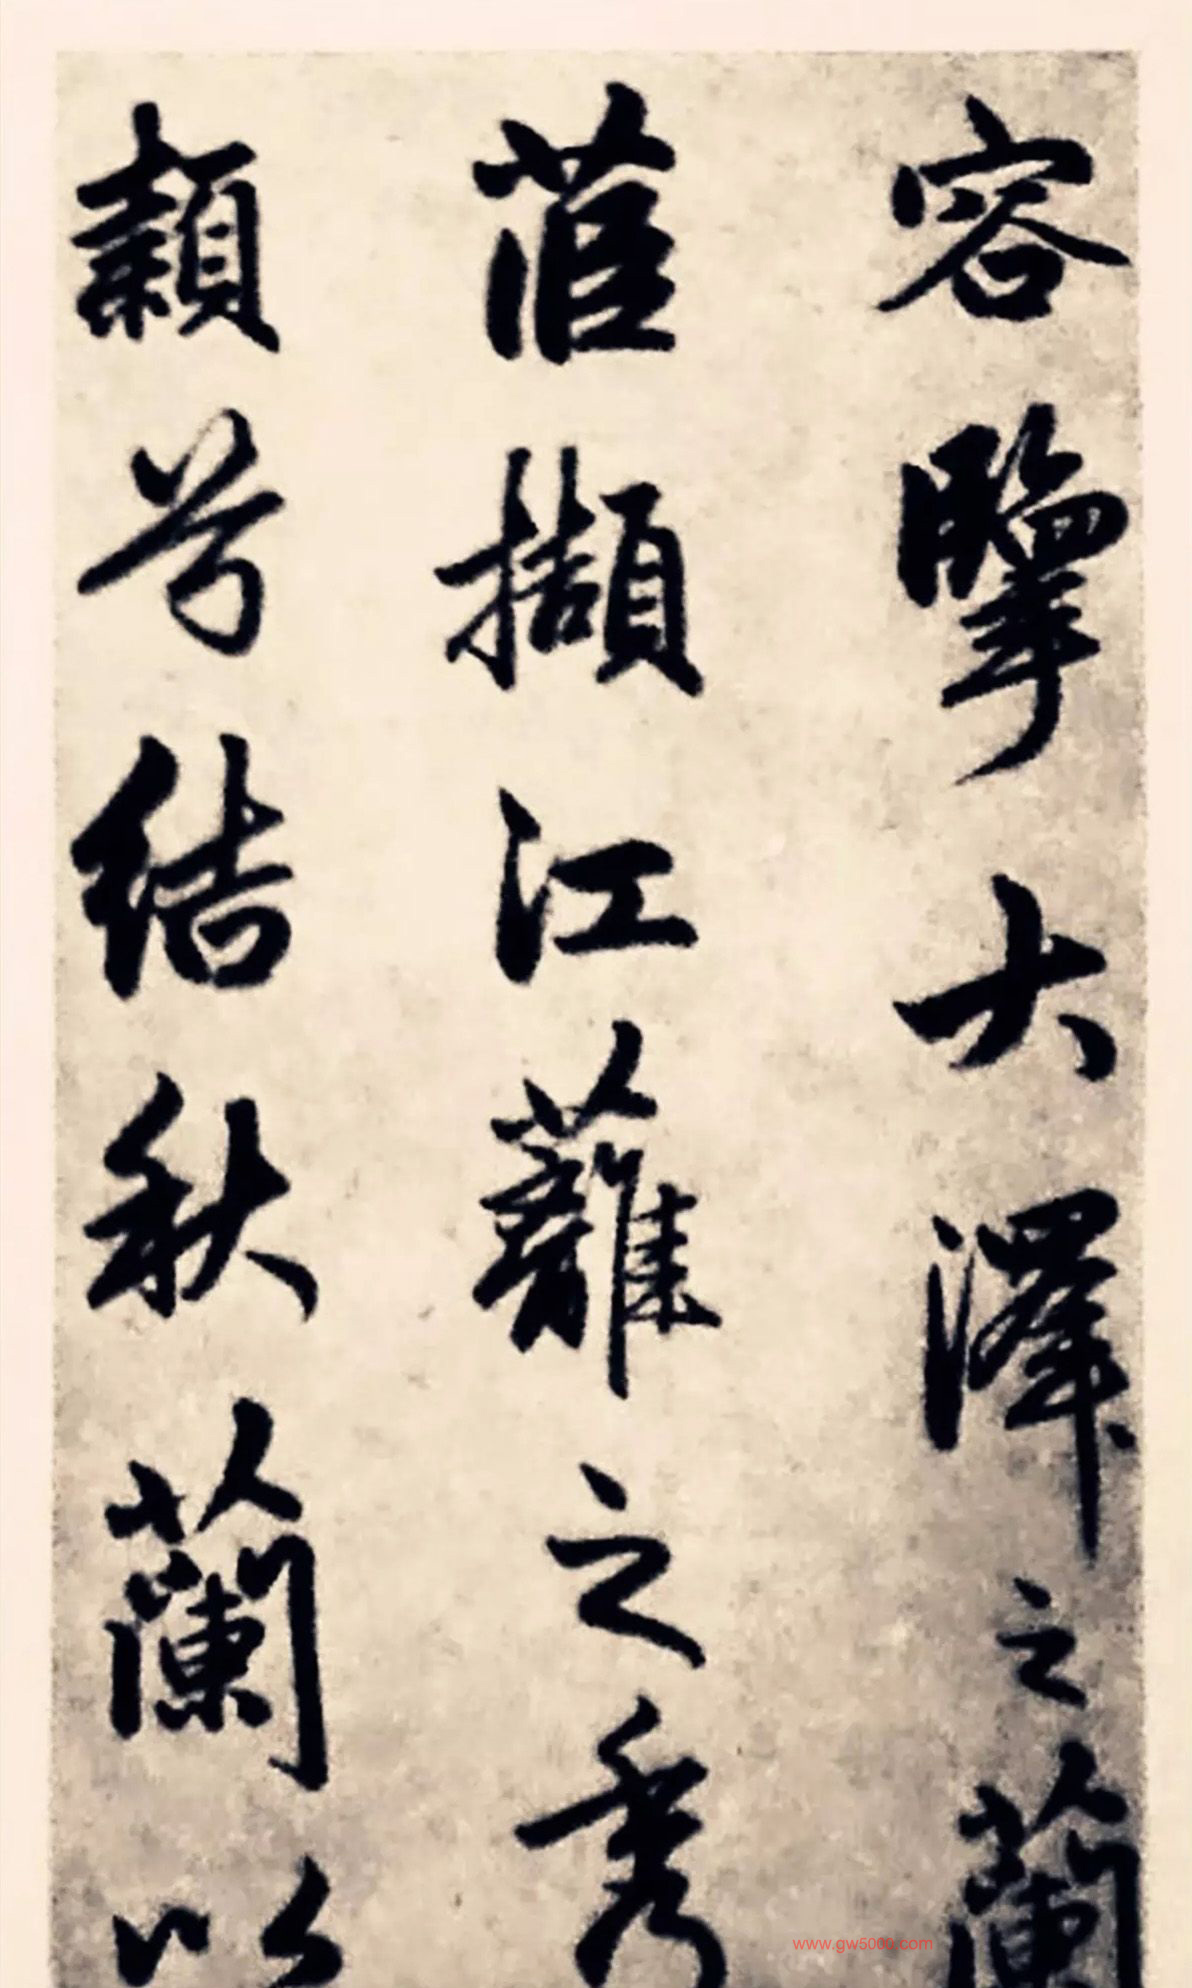 容擥大澤之蘭
茝擷江蘺之秀
穎兮結秋蘭以
www.gw5000.com